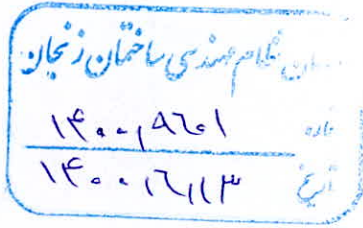 سازمان نظام مهندسی ساختمان زنجان
شماره ۱۴۰۰٫۹۶۰۱
تاریخ ۱۴۰۰٫۶٫۱۳